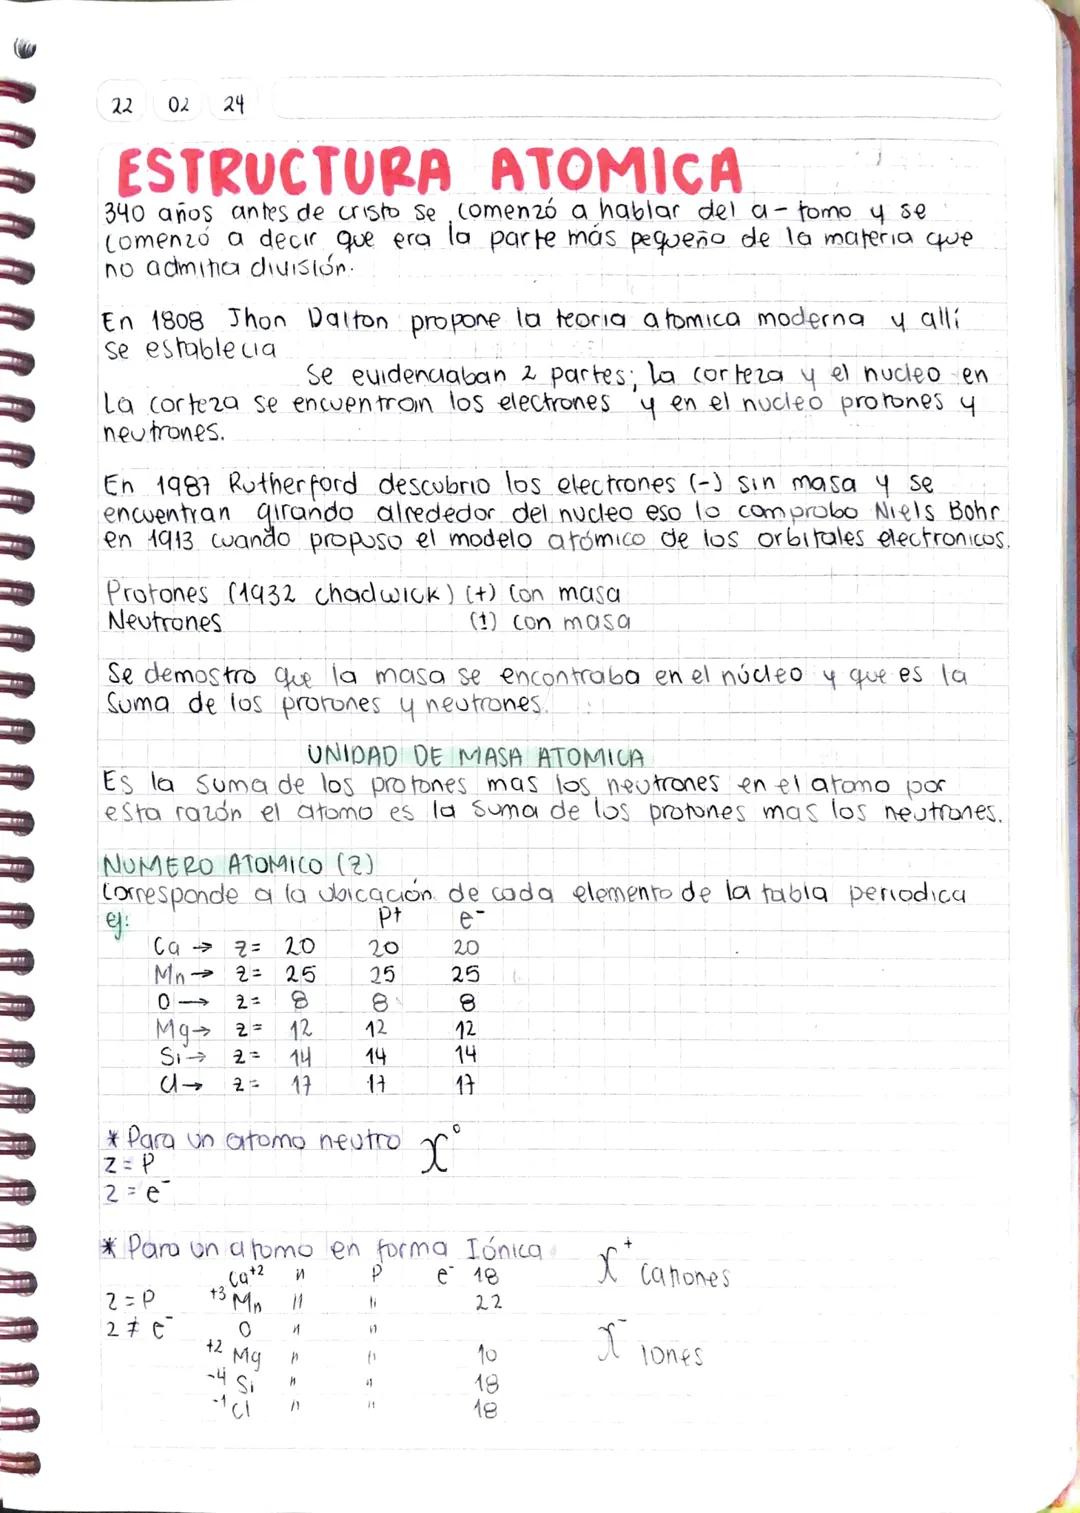 22 02 24
ESTRUCTURA ATOMICA
340 años antes de cristo se comenzó a hablar del a-tomo y se
comenzó a decir que era la parte más pequeño de la materia que
no admitia división.
En 1808 Jhon Dalton propone la teoria atomica moderna y allí
se establecia
Se evidenciaban 2 partes; la corteza y el nucleo en
La corteza se encuentran los electrones y en el nucleo protones y
neutrones.
En 1987 Rutherford descubrio los electrones (-) sin masa y se
encuentran girando alrededor del nucleo eso lo comprobo Niels Bohr
en 1913 cuando propuso el modelo atómico de los orbitales electronicos.
Protones (1932 chadwick) (+) con masa
Neutrones (±) con masa
Se demostro que la masa se encontraba en el núcleo y que es la
Suma de los protones y neutrones.
UNIDAD DE MASA ATOMICA
Es la suma de los protones mas los neutrones en el atomo por
esta razón el atomo es la suma de los protones mas los neutrones.
NUMERO ATOMICO (z)
Corresponde a la ubicación de cada elemento de la tabla periodica
ej: P+ e-
Ca → z= 20 20 20
Mn → z= 25 25 25
O → z= 8 8 8
Mg → z= 12 12 12
Si → z= 14 14 14
Cl → z= 17 17 17
* Para un atomo neutro X°
z = P
z = e-
* Para un atomo en forma Iónica X+ cationes
Ca+2 " P e- 18
z = P +3 Mn " " 22
z ≠ e- O " "
X- iones
+2 Mg " " 10
-4 Si " " 18
-1 Cl " " 18